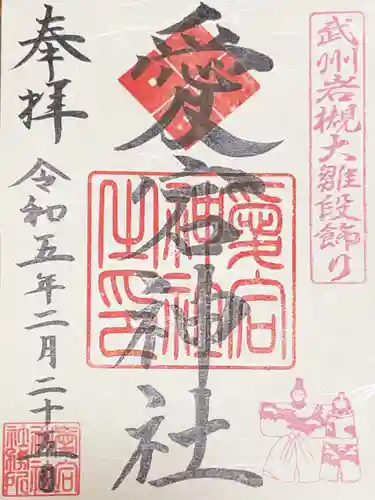 武州岩槻大雛段飾り
愛宕神社
愛宕神社之印
奉拝
令和五年二月二十五日
愛宕神社社務所